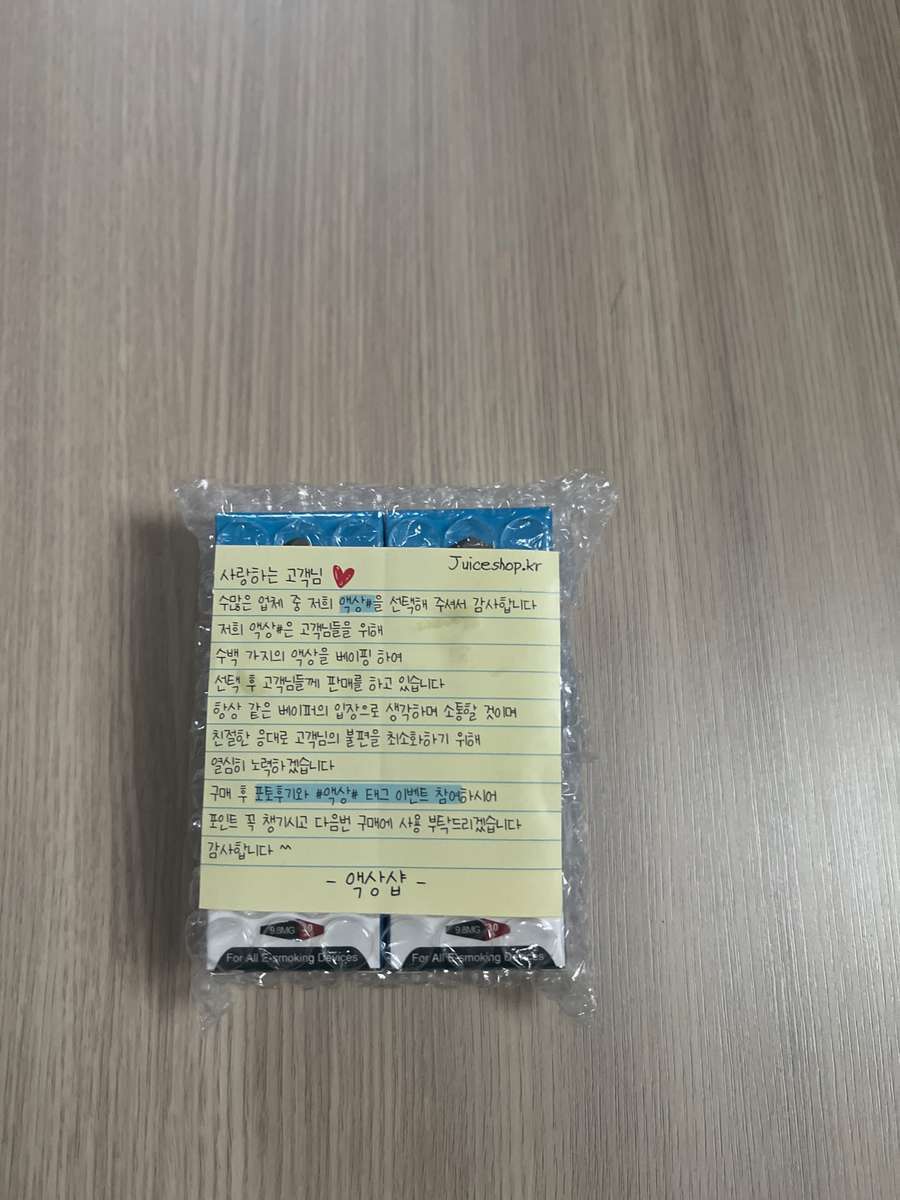 Juiceshop.kr
사랑하는 고객님
수많은 업체 중 저희 액상#을 선택해 주셔서 감사합니다
저희 액상#은 고객님들을 위해
수백 가지의 액상을 베이핑 하여
선택 후 고객님들께 판매를 하고 있습니다
항상 같은 베이퍼의 입장으로 생각하며 소통할 것이며
친절한 응대로 고객님의 불편을 최소화하기 위해
열심히 노력하겠습니다
구매 후 포토후기와 #액상# 태그 이벤트 참여하시어
포인트 꼭 챙기시고 다음번 구매에 사용 부탁드리겠습니다
감사합니다 ^^
- 액상샵 -
9.8MG 30 9.8MG 30
For All E-smoking Devices For All E-smoking Devices